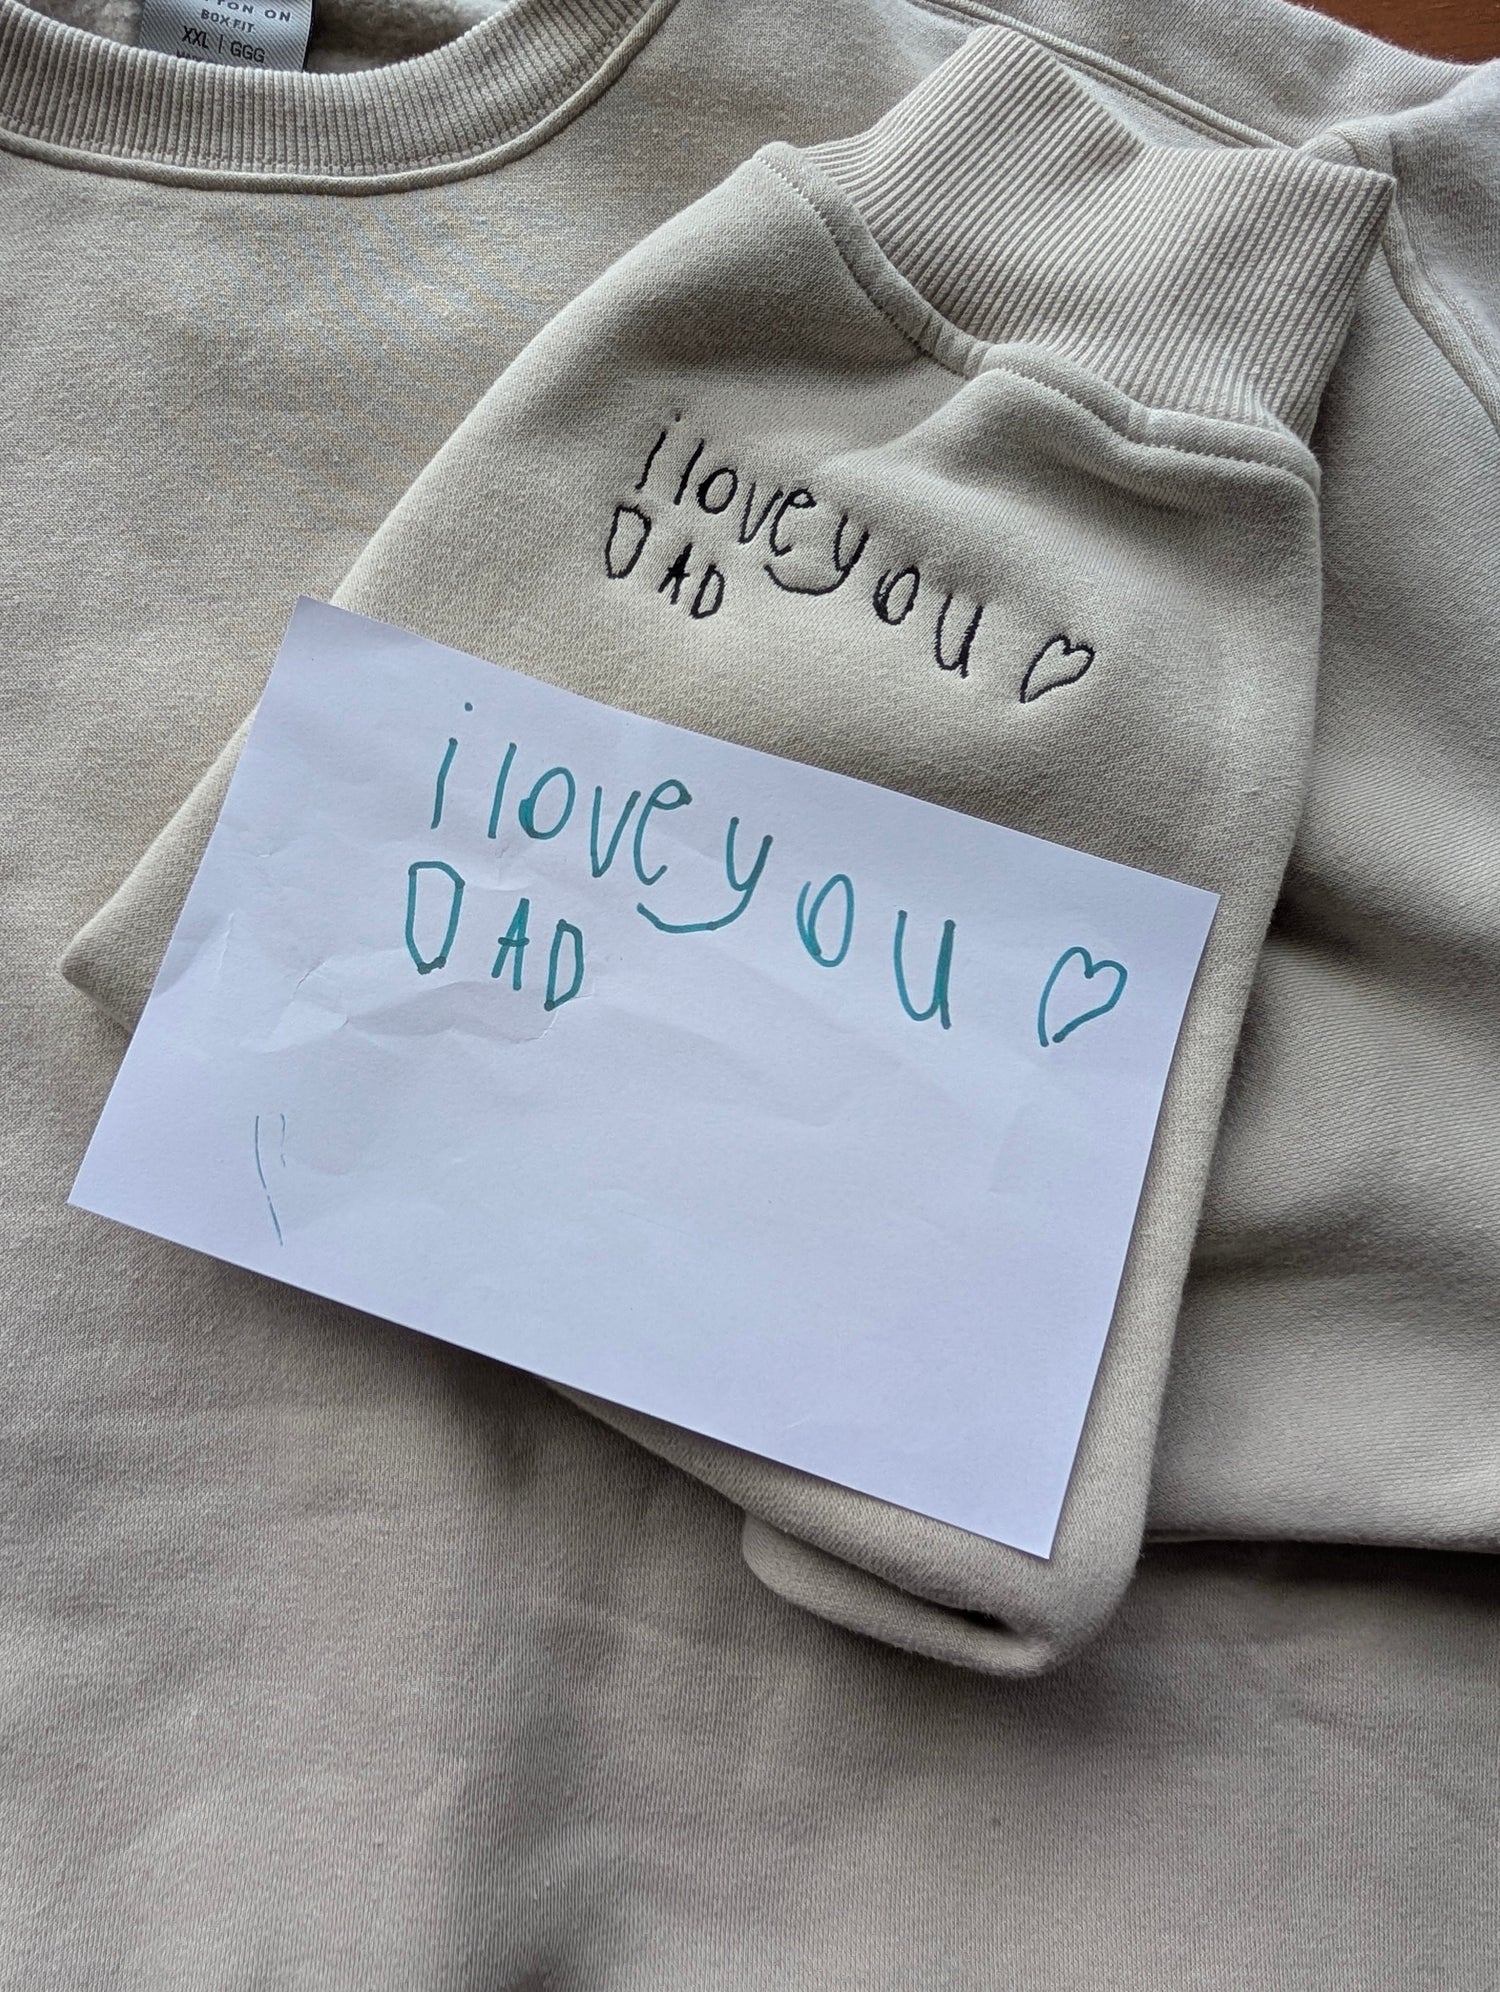 BOX FIT
XXL | GGG
i love you ♡
DAD
i love you ♡
DAD